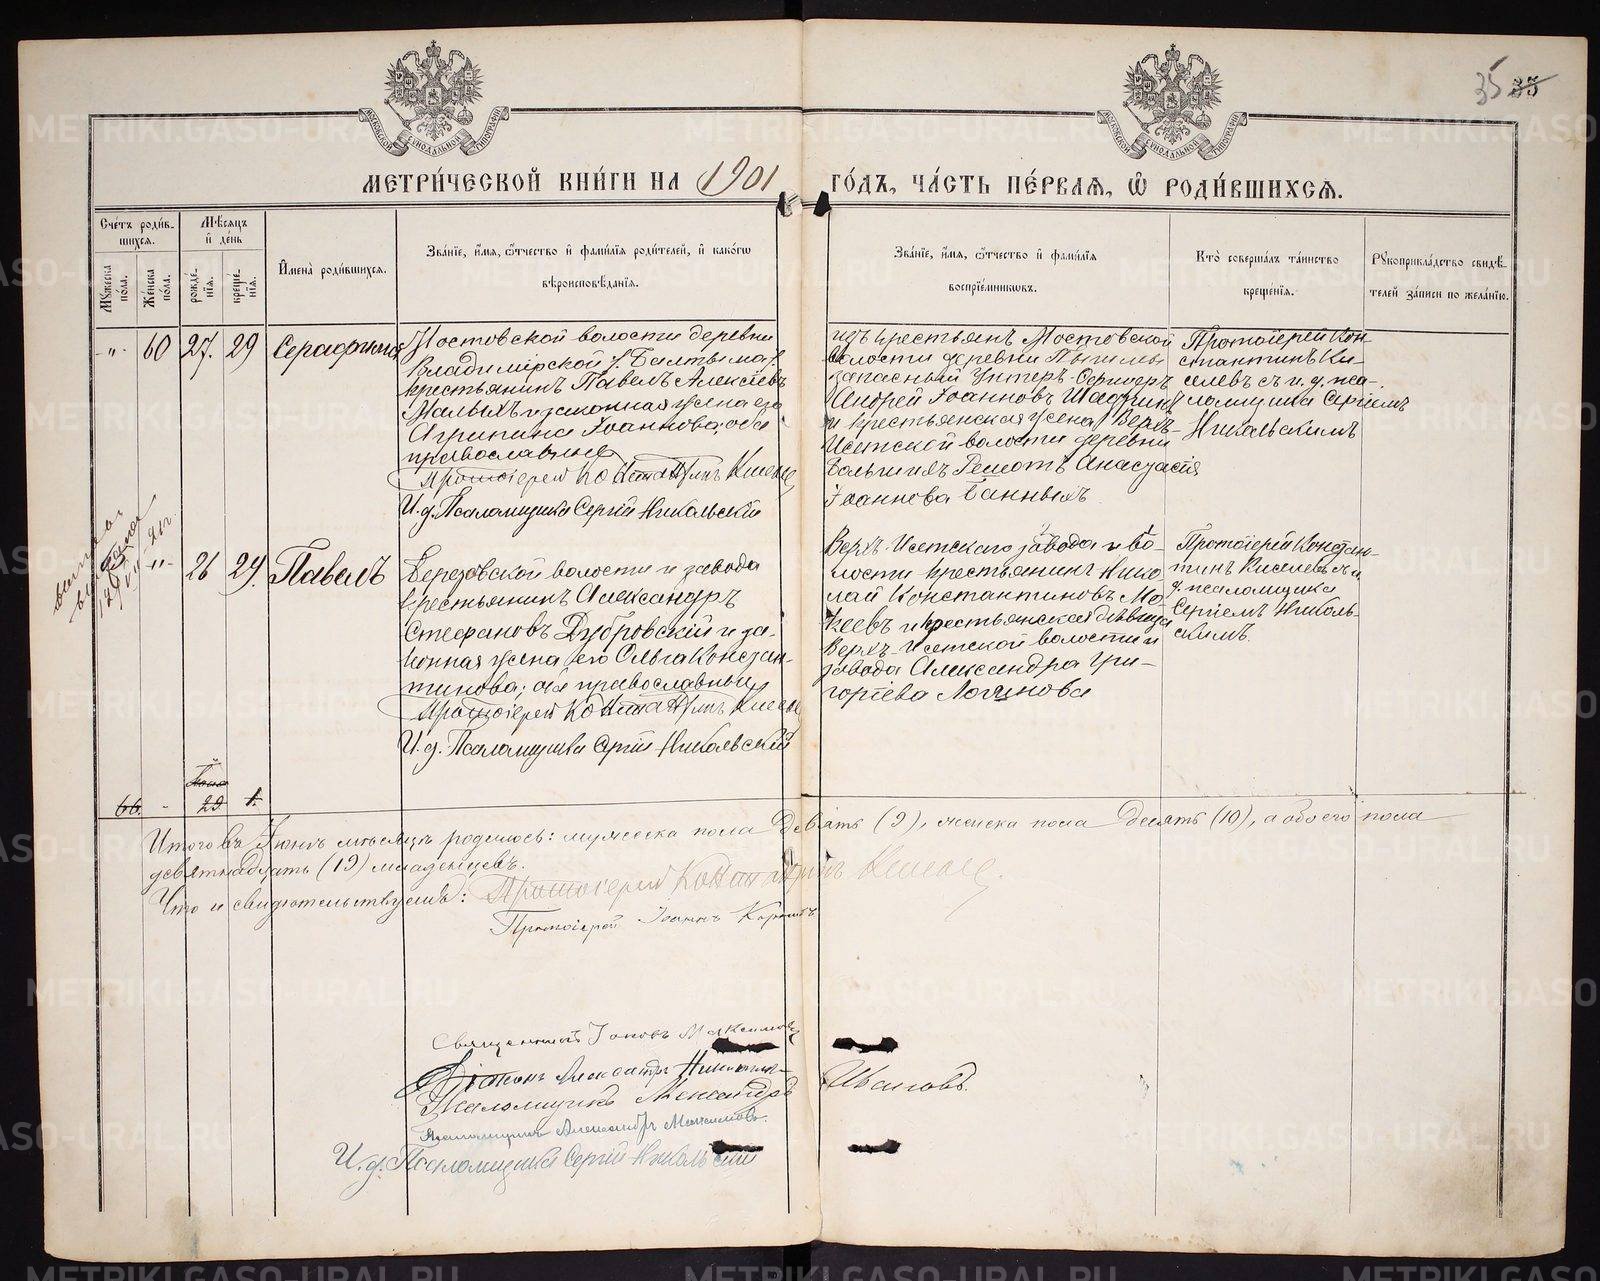 35 33
МОСКОВСКОЙ СѴНОДАЛЬНОЙ ТИПОГРАФІИ
МОСКОВСКОЙ СѴНОДАЛЬНОЙ ТИПОГРАФІИ
МЕТРИ́ЧЕСКОЙ КНИ́ГИ НА 1901 ГО́ДЪ, ЧА́СТЬ ПЕ́РВАѦ, Ѽ РОДИ́ВШИХСѦ.
Сче́тъ роди́в-
шихсѧ.
Мꙋжеска
по́ла.
Же́нска
по́ла.
Мѣ́сѧцъ
и҆ де́нь
рожде́-
нїѧ.
креще́-
нїѧ.
И҆мена̀ роди́вшихсѧ.
Зва́нїе, и҆́мѧ, ѻ҆́тчество и҆ фами́лїѧ роди́телей, и҆ како́гѡ
вѣроисповѣ́данїѧ.
Зва́нїе, и҆́мѧ, ѻ҆́тчество и҆ фами́лїѧ
воспрїе́мникѡвъ.
Кто̀ соверша́лъ та́инство
креще́нїѧ.
Рꙋкоприкла́дство свидѣ́-
телей за́писи по жела́нїю.
-"- 60 27. 29 Серафима
Мостовской волости деревни
Владимірской /: Балтыма :/
крестьянинъ Павелъ Алексѣевъ
Малыхъ и законная жена его
Агрипина Іоаннова; оба
православные
Протоіерей Константинъ Киселевъ
И. д. Псаломщика Сергій Никольскій
изъ крестьянъ Мостовской
волости деревни
запасный Унтеръ-Офицеръ
Андрей Іоанновъ
и крестьянская жена Верхъ-
Исетской волости деревни
Большихъ Решотъ Анастасія
Іоаннова Банныхъ.
Протоіерей Кон-
стантинъ Ки-
селевъ съ и. д. пса-
ломщика Сергіемъ
Никольскимъ
-"- 26 29. Павелъ
Березовской волости и завода
крестьянинъ Александръ
Стефановъ Дубровскій и за-
конная жена его Ольга Констан-
тинова; оба православные
Протоіерей Константинъ Киселевъ
И. д. Псаломщика Сергій Никольскій
Верхъ-Исетскаго завода и во-
лости крестьянинъ Нико-
лай Константиновъ Мо-
кеевъ и крестьянская дѣвица
Верхъ-Исетской волости и
завода Александра Гри-
горіева Логинова
Протоіерей Констан-
тинъ Киселевъ съ и.
д. псаломщика
Сергіемъ Николь-
скимъ.
66. - 29 1.
Итого въ Іюнѣ мѣсяцѣ родилось: мужеска пола девять (9), женска пола десять (10), а обоего пола
девятнадцать (19) младенцевъ.
Что и свидѣтельствуемъ: Протоіерей Константинъ Киселевъ.
Протоіерей Іоаннъ
Священникъ Іаковъ Максимовъ
Діаконъ Александръ
Псаломщикъ Александръ Ивановъ.
Псаломщикъ Александръ Максимовъ.
И. д. Псаломщика Сергій Никольскій
METRIKI.GASO-URAL.RU